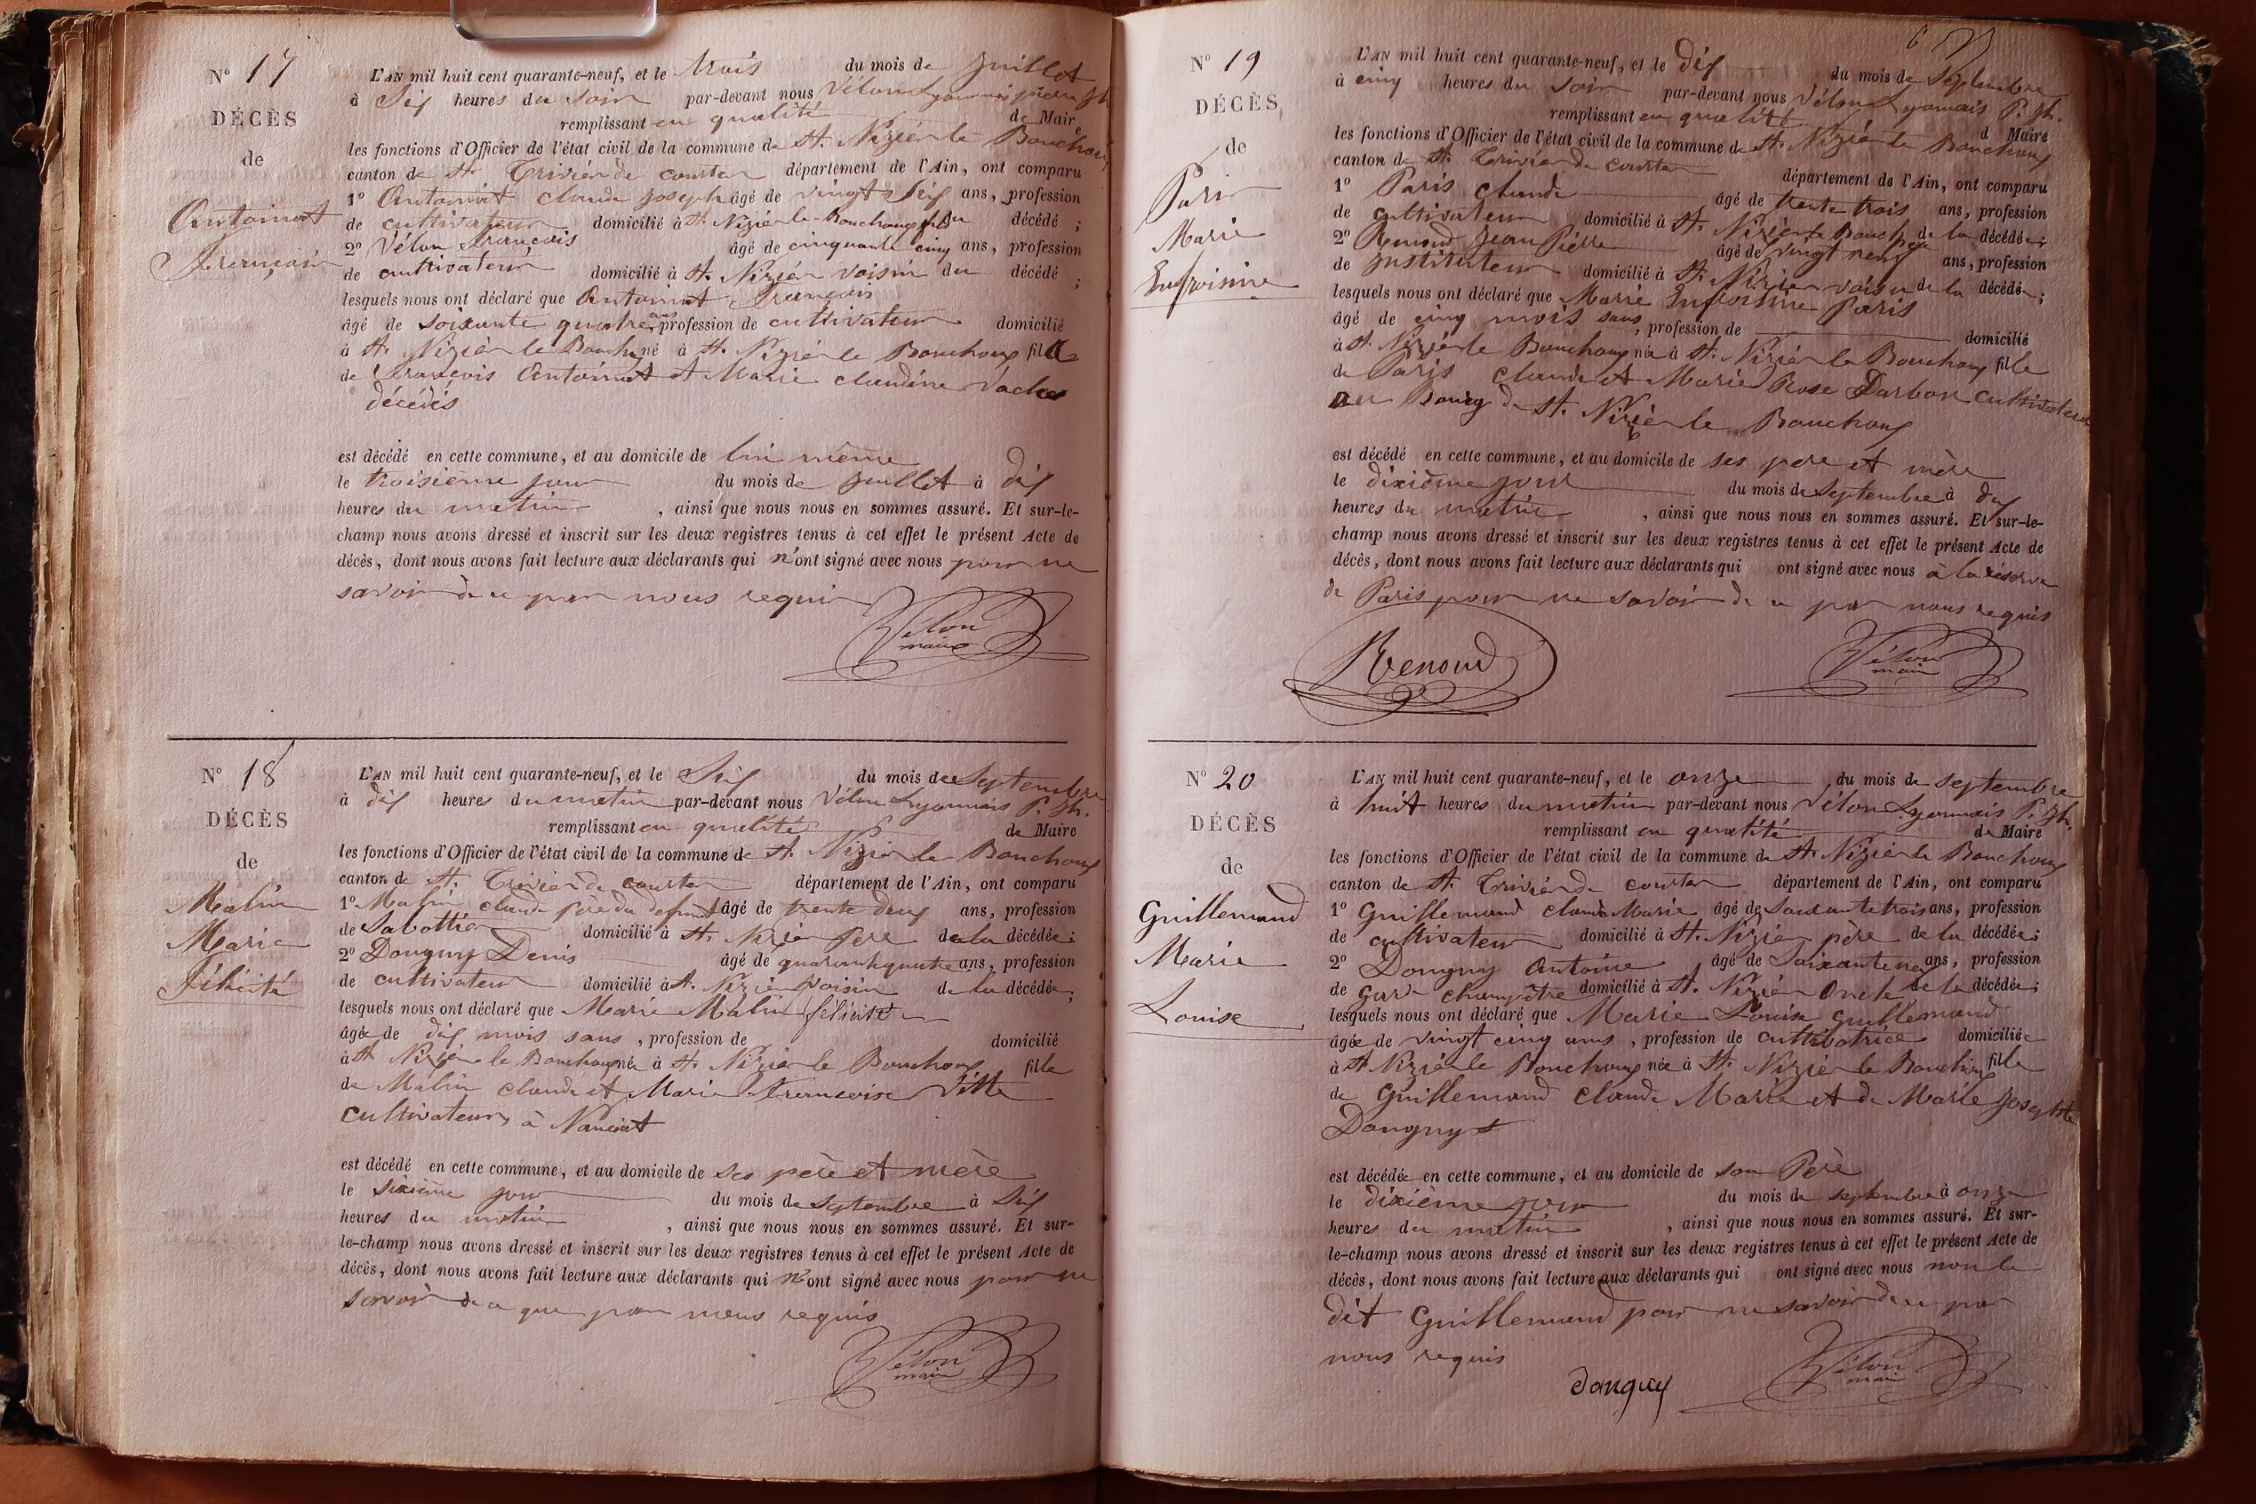 N° 17
DÉCÈS
de
Antoinat
François
L'AN mil huit cent quarante-neuf, et le trois du mois de Juillet
à Six heures du soir par-devant nous Vélon Lyonnais pierre Jh
remplissant en qualité de Maire
les fonctions d'Officier de l'état civil de la commune de St. Nizier le Bouchoux
canton de St Trivier de courtes département de l'Ain, ont comparu
1° Antoinat claude Joseph âgé de vingt Six ans, profession
de cultivateur domicilié à St Nizier le Bouchoux fils du décédé ;
2° Vélon François âgé de cinquante cinq ans, profession
de cultivateur domicilié à St. Nizier voisin du décédé ;
lesquels nous ont déclaré que Antoinat François
âgé de soixante quatre ans profession de cultivateur domicilié
à St. Nizier le Bouch né à St. Nizier le Bouchoux fils
de François Antoinat et Marie claudine Vacher
décédés
est décédé en cette commune, et au domicile de lui même
le troisième jour du mois de Juillet à dix
heures du matin , ainsi que nous nous en sommes assuré. Et sur-le-
champ nous avons dressé et inscrit sur les deux registres tenus à cet effet le présent Acte de
décès, dont nous avons fait lecture aux déclarants qui n'ont signé avec nous pour ne
savoir de ce par nous requis
Vélon
maire
N° 18
DÉCÈS
de
Malin
Marie
Félicité
L'AN mil huit cent quarante-neuf, et le Six du mois de Septembre
à dix heures du matin par-devant nous Vélon Lyonnais P. Jh.
remplissant en qualité de Maire
les fonctions d'Officier de l'état civil de la commune de St. Nizier le Bouchoux
canton de St. Trivier de courtes département de l'Ain, ont comparu
1° Malin claude père du defunt âgé de trente deux ans, profession
de Sabottier domicilié à St. Nizier Père de la décédée ;
2° Donguy Denis âgé de quarante quatre ans, profession
de cultivateur domicilié à St. Nizier voisin de la décédée ;
lesquels nous ont déclaré que Marie Malin félicité
âgée de dix mois sans , profession de domicilié
à St Nizier le Bouchoux née à St. Nizier le Bouchoux fille
de Malin claude et Marie Francoise Vitte
cultivateurs à Nanciat
est décédé en cette commune, et au domicile de ses père et mère
le sixième jour du mois de septembre à Six
heures du matin , ainsi que nous nous en sommes assuré. Et sur-
le-champ nous avons dressé et inscrit sur les deux registres tenus à cet effet le présent Acte de
décès, dont nous avons fait lecture aux déclarants qui n'ont signé avec nous pour ne
savoir de ce que par nous requis
Vélon
maire
N° 19
DÉCÈS
de
Paris
Marie
Enfroisine
L'AN mil huit cent quarante-neuf, et le dix du mois de Septembre
à cinq heures du soir par-devant nous Vélon Lyonnais P. Jh.
remplissant en qualité d Maire
les fonctions d'Officier de l'état civil de la commune de St. Nizier le Bouchoux
canton de St. Trivier de courtes département de l'Ain, ont comparu
1° Paris claude âgé de trente trois ans, profession
de cultivateur domicilié à St. Nizier le Bouch père de la décédée ;
2° Renoud Jean Pierre âgé de vingt neuf ans, profession
de Instituteur domicilié à St. Nizier voisin de la décédée ;
lesquels nous ont déclaré que Marie Enfroisine Paris
âgé de cinq mois sans , profession de domicilié
à St. Nizier le Bouchoux née à St. Nizier le Bouchoux fille
de Paris claude et Marie Rose Darbon cultivateurs
au Bourg de St. Nizier le Bouchoux
est décédé en cette commune, et au domicile de ses pere et mère
le dixième jour du mois de Septembre à dix
heures du matin , ainsi que nous nous en sommes assuré. Et sur-le-
champ nous avons dressé et inscrit sur les deux registres tenus à cet effet le présent Acte de
décès, dont nous avons fait lecture aux déclarants qui ont signé avec nous à la réserve
de Paris pour ne savoir de ce par nous requis
Renoud
Vélon
maire
N° 20
DÉCÈS
de
Guillemand
Marie
Louise
L'AN mil huit cent quarante-neuf, et le onze du mois de septembre
à huit heures du matin par-devant nous Vélon Lyonnais P. Jh.
remplissant en qualité de Maire
les fonctions d'Officier de l'état civil de la commune de St. Nizier le Bouchoux
canton de St. Trivier de courtes département de l'Ain, ont comparu
1° Guillemand claude Marie âgé de Soixante trois ans, profession
de cultivateur domicilié à St. Nizier père de la décédée ;
2° Donguy Antoine âgé de Soixante neuf ans, profession
de garde champêtre domicilié à St. Nizier Oncle de la décédée ;
lesquels nous ont déclaré que Marie Louise Guillemand
âgée de vingt cinq ans , profession de cultivatrice domiciliée
à St Nizier le Bouchoux née à St. Nizier le Bouchoux fille
de Guillemand claude Marie et de Marie Josephte
Donguy
est décédée en cette commune, et au domicile de son Père
le dixième jour du mois de septembre à onze
heures du matin , ainsi que nous nous en sommes assuré. Et sur-
le-champ nous avons dressé et inscrit sur les deux registres tenus à cet effet le présent Acte de
décès, dont nous avons fait lecture aux déclarants qui ont signé avec nous non le
dit Guillemand pour ne savoir de ce par
nous requis
donguy
Vélon
maire